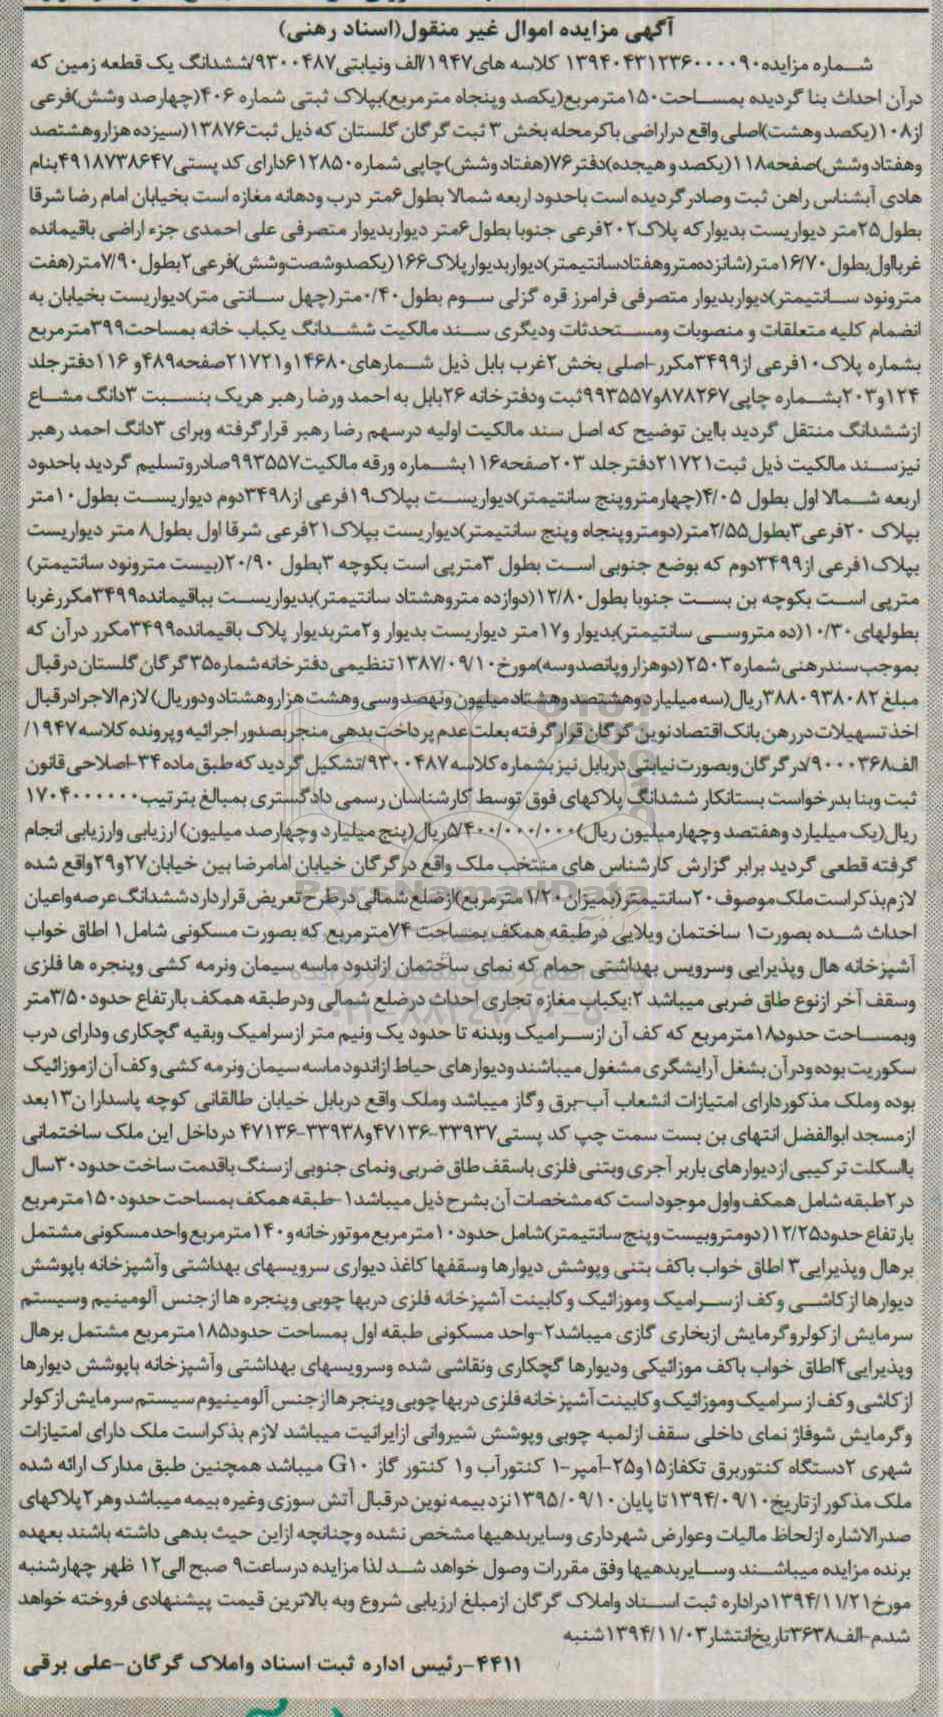 آگهی مزایده اموال غیر منقول(اسناد رهنی)
شماره مزایده۱۳۹۴۰۴۳۱۲۳۶۰۰۰۰۹۰ کلاسه های۱۹۴۷/الف ونیابتی۹۳۰۰۴۸۷/ششدانگ یک قطعه زمین که
درآن احداث بنا گردیده بمساحت۱۵۰مترمربع(یکصد وپنجاه مترمربع)بپلاک ثبتی شماره ۴۰۶(چهارصد وشش)فرعی
از۱۰۸(یکصد وهشت)اصلی واقع دراراضی باکرمحله بخش ۳ ثبت گرگان گلستان که ذیل ثبت۱۳۸۷۶(سیزده هزاروهشتصد
وهفتاد وشش)صفحه۱۱۸(یکصد و هیجده)دفتر۷۶(هفتاد وشش)چاپی شماره۶۱۲۸۵۰دارای کد پستی۴۹۱۸۷۳۸۶۴۷بنام
هادی آبشناس راهن ثبت وصادر گردیده است باحدود اربعه شمالا بطول۶متر درب ودهانه مغازه است بخیابان امام رضا شرقا
بطول۲۵متر دیواریست بدیوارکه پلاک۲۰۲فرعی جنوبا بطول۶متر دیواربدیوار متصرفی علی احمدی جزء اراضی باقیمانده
غربااول‌بطول۱۶/۷۰متر(شانزده‌متروهفتادسانتیمتر)دیواربدیوارپلاک۱۶۶(یکصدوشصت‌وشش)فرعی۲بطول۷/۹۰متر(هفت
مترونود سانتیمتر)دیواربدیوار متصرفی فرامرز قره گزلی سوم بطول۰/۴۰متر(چهل سانتی متر)دیواریست بخیابان به
انضمام کلیه متعلقات و منصوبات ومستحدثات ودیگری سند مالکیت ششدانگ یکباب خانه بمساحت۳۹۹مترمربع
بشماره پلاک۱۰فرعی از۳۴۹۹مکرر-اصلی بخش۲غرب بابل ذیل شمارهای۱۴۶۸۰و۲۱۷۲۱صفحه۴۸۹و ۱۱۶دفترجلد
۱۲۴و۲۰۳بشماره چاپی۸۷۸۲۶۷و۹۹۳۵۵۷ثبت ودفترخانه ۲۶بابل به احمد ورضا رهبر هریک بنسبت ۳دانگ مشاع
ازششدانگ منتقل گردید بااین توضیح که اصل سند مالکیت اولیه درسهم رضا رهبر قرارگرفته وبرای ۳دانگ احمد رهبر
نیزسند مالکیت ذیل ثبت۲۱۷۲۱دفترجلد ۲۰۳صفحه۱۱۶بشماره ورقه مالکیت۹۹۳۵۵۷صادروتسلیم گردید باحدود
اربعه شمالا اول بطول ۴/۰۵(چهارمتروپنج سانتیمتر)دیواریست بپلاک۱۹فرعی از۳۴۹۸دوم دیواریست بطول۱۰متر
بپلاک ۲۰فرعی۳بطول۲/۵۵متر(دومتروپنجاه وپنج سانتیمتر)دیواریست بپلاک۲۱فرعی شرقا اول بطول۸ متر دیواریست
بپلاک۱فرعی از۳۴۹۹دوم که بوضع جنوبی است بطول ۳متر‌پی است بکوچه ۳بطول ۲۰/۹۰(بیست مترونود سانتیمتر)
مترپی است بکوچه بن بست جنوبا بطول۱۲/۸۰(دوازده متروهشتاد سانتیمتر)بدیواریست بباقیمانده۳۴۹۹مکررغربا
بطولهای۱۰/۳۰(ده متروسی سانتیمتر)بدیوار و۱۷متر دیواریست بدیوار و۲متربدیوار پلاک باقیمانده۳۴۹۹مکرر درآن که
بموجب سندرهنی شماره ۲۵۰۳(دوهزار وپانصدوسه)مورخ۱۳۸۷/۰۹/۱۰تنظیمی دفترخانه شماره۳۵گرگان گلستان درقبال
مبلغ ۳۸۸۰۹۳۸۰۸۲ریال(سه میلیاردوهشتصدوهشتاد میلیون ونهصدوسی وهشت هزاروهشتادودوریال) لازم الاجرا درقبال
اخذ تسهیلات دررهن بانک اقتصادنوین گرگان قرارگرفته بعلت عدم پرداخت بدهی منجربصدور اجرائیه وپرونده کلاسه ۱۹۴۷/
الف۹۰۰۰۳۶۸/در گرگان وبصورت نیابتی دربابل نیز بشماره کلاسه ۹۳۰۰۴۸۷/تشکیل گردید که طبق ماده ۳۴-اصلاحی قانون
ثبت وبنا بدرخواست بستانکار ششدانگ پلاکهای فوق توسط کارشناسان رسمی دادگستری بمبالغ بترتیب۱۷۰۴۰۰۰۰۰۰
ریال(یک میلیارد وهفتصد وچهارمیلیون ریال)۵/۴۰۰/۰۰۰/۰۰۰ریال(پنج میلیارد وچهارصد میلیون) ارزیابی وارزیابی انجام
گرفته قطعی گردید برابر گزارش کارشناس های منتخب ملک واقع درگرگان خیابان امامرضا بین خیابان۲۷و۲۹واقع شده
لازم‌بذکراست‌ملک‌موصوف۲۰سانتیمتر(بمیزان۱/۲۰مترمربع)ازضلع شمالی درطرح تعریض قراردارد ششدانگ عرصه‌واعیان
احداث شده بصورت۱ ساختمان ویلایی درطبقه همکف بمساحت ۷۴مترمربع که بصورت مسکونی شامل۱ اطاق خواب
آشپزخانه هال وپذیرایی وسرویس بهداشتی حمام که نمای ساختمان ازاندود ماسه سیمان ونرمه کشی وپنجره ها فلزی
وسقف آخر ازنوع طاق ضربی میباشد ۲:یکباب مغازه تجاری احداث درضلع شمالی ودرطبقه همکف باارتفاع حدود۳/۵۰متر
وبمساحت حدود۱۸مترمربع که کف آن ازسرامیک وبدنه تا حدود یک ونیم متر ازسرامیک وبقیه گچکاری ودارای درب
سکوریت بوده ودرآن بشغل آرایشگری مشغول میباشند ودیوارهای حیاط ازاندود ماسه سیمان ونرمه کشی وکف آن ازموزائیک
بوده وملک مذکوردارای امتیازات انشعاب آب-برق وگاز میباشد وملک واقع دربابل خیابان طالقانی کوچه پاسدارا ن۱۳بعد
ازمسجد ابوالفضل انتهای بن بست سمت چپ کد پستی۳۳۹۳۷-۴۷۱۳۶و۳۳۹۳۸-۴۷۱۳۶ درداخل این ملک ساختمانی
بااسکلت ترکیبی ازدیوارهای باربر آجری وبتنی فلزی باسقف طاق ضربی ونمای جنوبی ازسنگ باقدمت ساخت حدود۳۰سال
در۲طبقه شامل همکف واول موجود است که مشخصات آن بشرح ذیل میباشد۱-طبقه همکف بمساحت حدود۱۵۰مترمربع
بارتفاع حدود۱۲/۲۵(دومتروبیست وپنج سانتیمتر)شامل حدود۱۰مترمربع موتورخانه و۱۴۰مترمربع واحد مسکونی مشتمل
برهال وپذیرایی۳ اطاق خواب باکف بتنی وپوشش دیوارها وسقفها کاغذ دیواری سرویسهای بهداشتی وآشپزخانه باپوشش
دیوارها ازکاشی وکف ازسرامیک وموزائیک وکابینت آشپزخانه فلزی دربها چوبی وپنجره ها ازجنس آلومینیم وسیستم
سرمایش ازکولروگرمایش ازبخاری گازی میباشد۲-واحد مسکونی طبقه اول بمساحت حدود۱۸۵مترمربع مشتمل برهال
وپذیرایی۴اطاق خواب باکف موزائیکی ودیوارها گچکاری ونقاشی شده وسرویسهای بهداشتی وآشپزخانه باپوشش دیوارها
ازکاشی وکف از سرامیک وموزائیک وکابینت آشپزخانه فلزی دربها چوبی وپنجرها ازجنس آلومینیوم سیستم سرمایش ازکولر
وگرمایش شوفاژ نمای داخلی سقف ازلمبه چوبی وپوشش شیروانی ازایرانیت میباشد لازم بذکراست ملک دارای امتیازات
شهری ۲دستگاه کنتوربرق تکفاز۱۵و۲۵-آمپر-۱ کنتورآب و۱ کنتور گاز G۱۰ میباشد همچنین طبق مدارک ارائه شده
ملک مذکور ازتاریخ۱۳۹۴/۰۹/۱۰تا پایان۱۳۹۵/۰۹/۱۰نزد بیمه نوین درقبال آتش سوزی وغیره بیمه میباشد وهر۲پلاکهای
صدرالاشاره ازلحاظ مالیات وعوارض شهرداری وسایربدهیها مشخص نشده وچنانچه ازاین حیث بدهی داشته باشند بعهده
برنده مزایده میباشند وسایربدهیها وفق مقررات وصول خواهد شد لذا مزایده درساعت۹ صبح الی۱۲ ظهر چهارشنبه
مورخ۱۳۹۴/۱۱/۲۱دراداره ثبت اسناد واملاک گرگان ازمبلغ ارزیابی شروع وبه بالاترین قیمت پیشنهادی فروخته خواهد
شد.م-الف۳۶۳۸تاریخ‌انتشار۱۳۹۴/۱۱/۰۳شنبه
۴۴۱۱-رئیس اداره ثبت اسناد واملاک گرگان-علی برقی
ParsNamadData